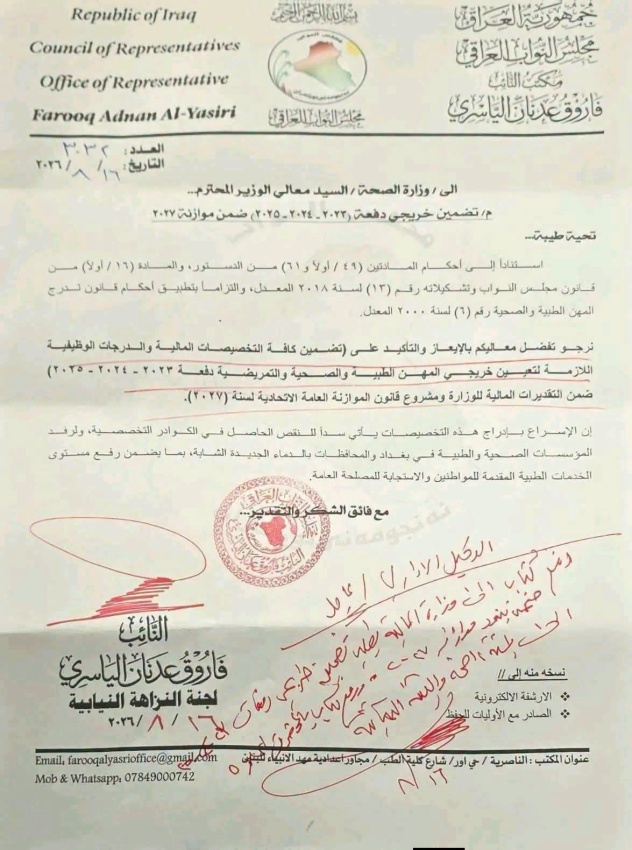 بسم الله الرحمن الرحيم
Republic of Iraq
Council of Representatives
Office of Representative
Farooq Adnan Al-Yasiri
جمهورية العراق
مجلس النواب العراقي
مكتب النائب
فاروق عدنان الياسري
مجلس النواب العراقي
العدد: ٣٠٣٢
التاريخ: ١٦ / ٨ / ٢٠٢٦
الى/ وزارة الصحة/ السيد معالي الوزير المحترم...
م/ تضمين خريجي دفعة (٢٠٢٣ - ٢٠٢٤ - ٢٠٢٥) ضمن موازنة ٢٠٢٧
تحية طيبة...
استناداً إلى أحكام المادتين (٤٩/ أولاً و٦١) من الدستور، والمادة (١٦/ أولاً) من
قانون مجلس النواب وتشكيلاته رقم (١٣) لسنة ٢٠١٨ المعدل، والتزاماً بتطبيق أحكام قانون تدرج
المهن الطبية والصحية رقم (٦) لسنة ٢٠٠٠ المعدل.
نرجو تفضل معاليكم بالإيعاز والتأكيد على (تضمين كافة التخصيصات المالية والدرجات الوظيفية
اللازمة لتعيين خريجي المهن الطبية والصحية والتمريضية دفعة ٢٠٢٣ - ٢٠٢٤ - ٢٠٢٥)
ضمن التقديرات المالية للوزارة ومشروع قانون الموازنة العامة الاتحادية لسنة (٢٠٢٧).
إن الإسراع بإدراج هذه التخصيصات يأتي سداً للنقص الحاصل في الكوادر التخصصية، ولرفد
المؤسسات الصحية والطبية في بغداد والمحافظات بالدماء الجديدة الشابة، بما يضمن رفع مستوى
الخدمات الطبية المقدمة للمواطنين والاستجابة للمصلحة العامة.
مع فائق الشكر والتقدير...
الوكيل الاداري / عاجل
كتاب الى وزارة المالية
النائب
فاروق عدنان الياسري
لجنة النزاهة النيابية
١٦ / ٨ / ٢٠٢٦
نسخه منه إلى //
❖ الارشفة الالكترونية
❖ الصادر مع الأوليات للحفظ
٨/١٦
Email: farooqalyasrioffice@gmail.com
Mob & Whatsapp: 07849000742
عنوان المكتب: الناصرية/ حي اور/ شارع كلية الطب/ مجاور اعدادية مهد الانبياء للبنان